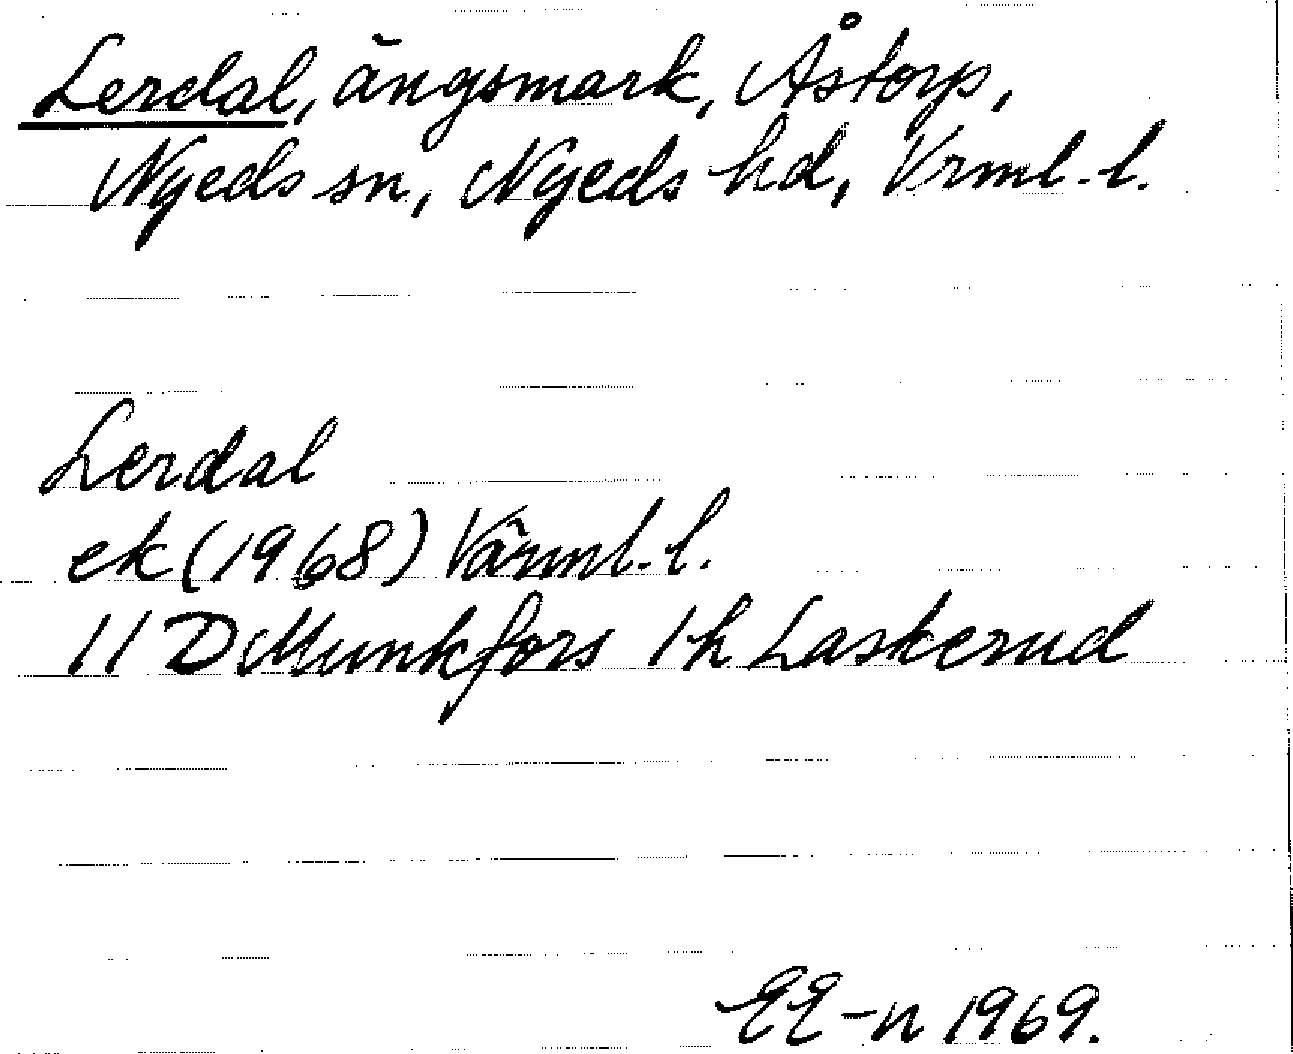 Lerdal, ängsmark, Åstorp,
Nyeds sn, Nyeds hd, Vrml. l.
Lerdal
ek (1968) Värml. l.
11 D Munkfors 1 h Laskerud
EE-n 1969.